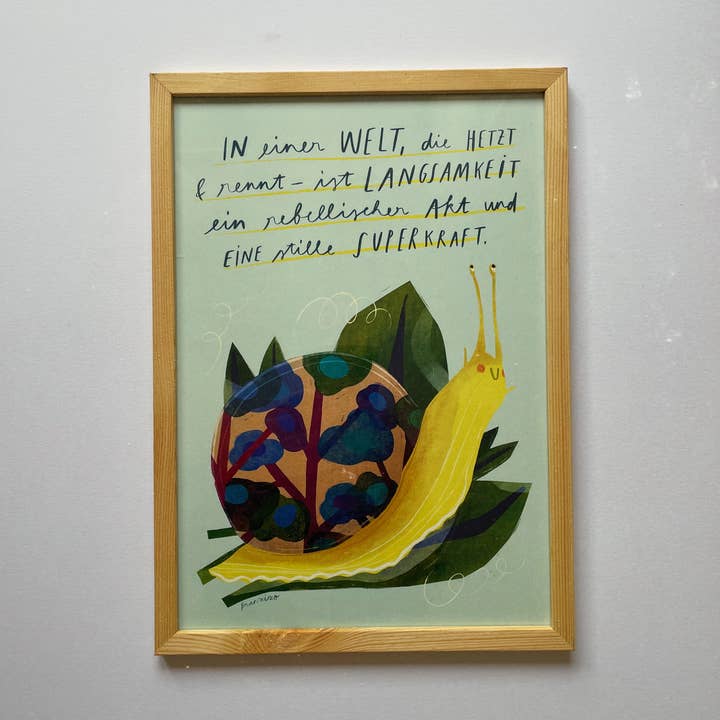 IN einer WELT, die HETZT
& rennt – ist LANGSAMKEIT
ein rebellischer AKT und
EINE stille SUPERKRAFT.